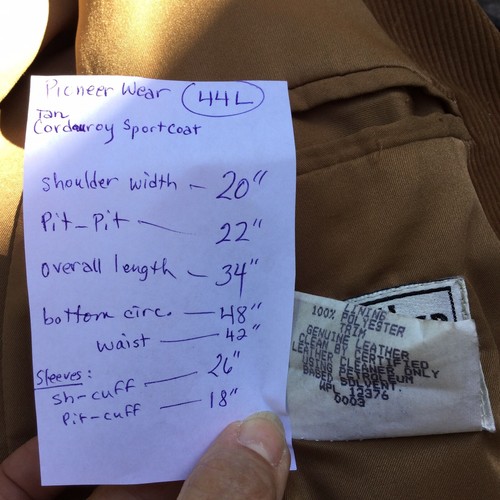 Pioneer Wear 44L
Tan
Corduroy Sportcoat
Shoulder width - 20"
Pit-Pit - 22"
overall length - 34"
bottom circ. - 48"
waist - 42"
Sleeves:
sh-cuff - 26"
pit-cuff - 18"
100%
TRIM
GENUINE LEATHER
CLEAN BY CERTIFIED
LEATHER CLEANER ONLY
SOLVENT.
WPL 12376
0003